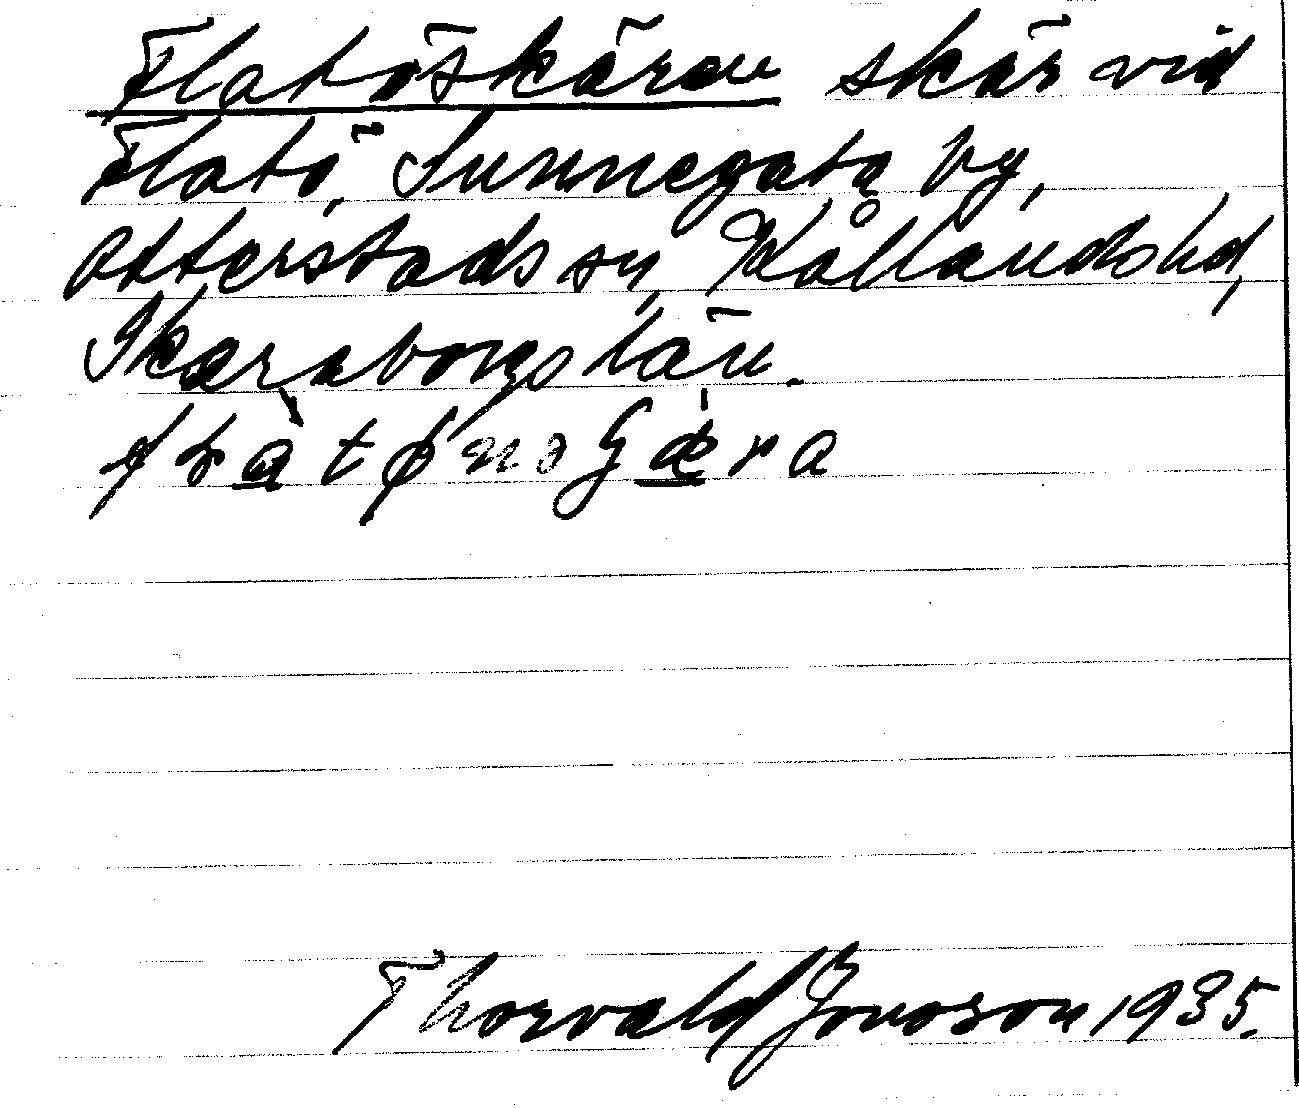 Flatöskären skär vid
Flatö, Sunnegata by,
Otterstads sn, Kållands hd,
Skaraborgs län.
Thorvald Jonoson 1935.